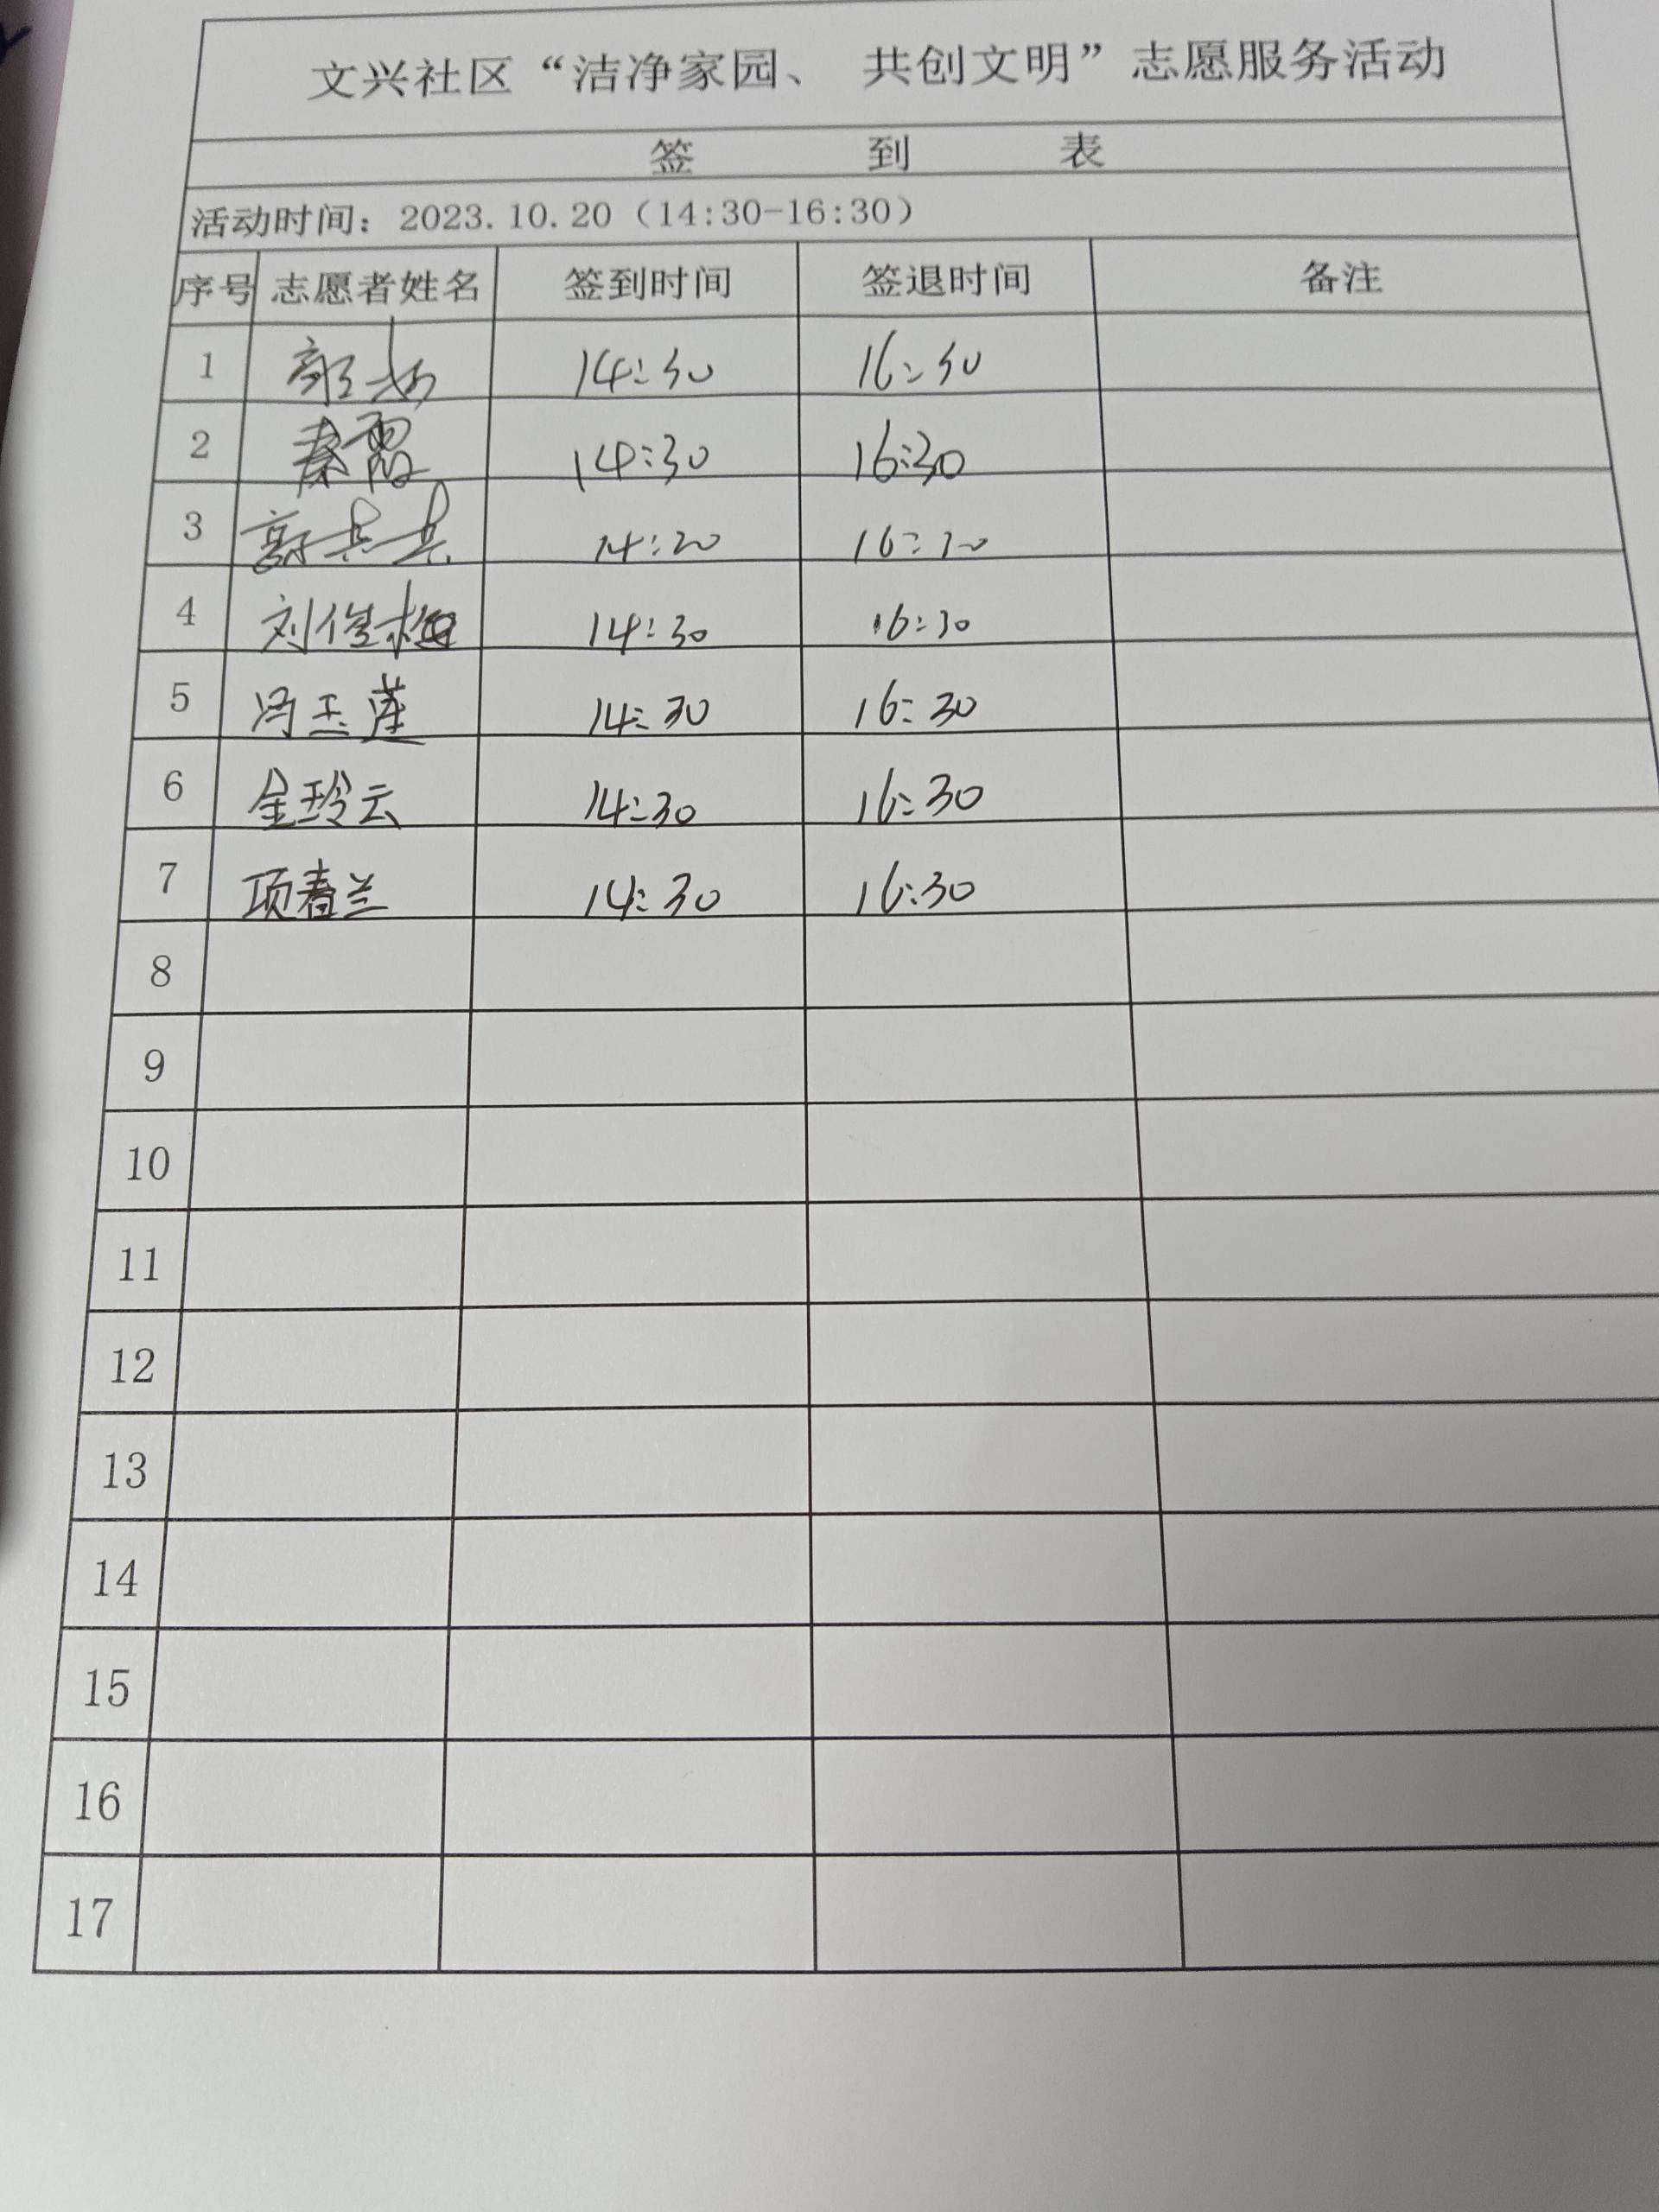 文兴社区“洁净家园、 共创文明”志愿服务活动
签 到 表
活动时间：2023.10.20（14:30-16:30）
序号 志愿者姓名 签到时间 签退时间 备注
1 14:30 16:30
2 秦霞 14:30 16:30
3 14:20 16:30
4 刘俊梅 14:30 16:30
5 冯玉莲 14:30 16:30
6 金玲云 14:30 16:30
7 项春兰 14:30 16:30
8
9
10
11
12
13
14
15
16
17